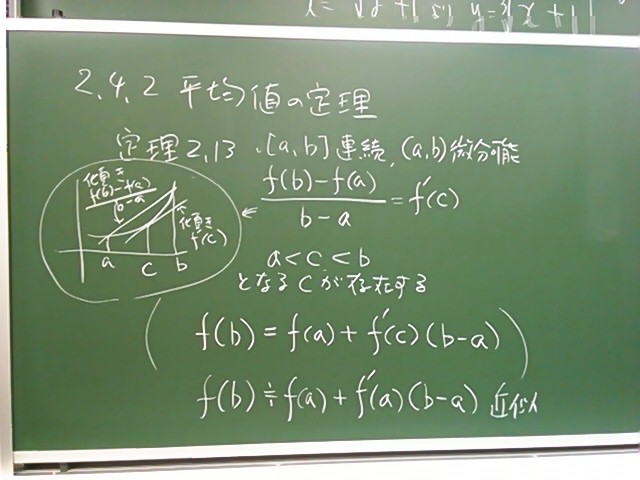 x = √y+1 より y = 3√x+1
2.4.2 平均値の定理
定理2.13 ・[a,b]連続, (a,b)微分可能
傾き
f(b)−f(a)
b−a
傾き
f'(c)
a c b
f(b)−f(a)
b−a
= f'(c)
a < c < b
となる c が存在する
( f(b) = f(a) + f'(c)(b−a) )
f(b) ≒ f(a) + f'(a)(b−a) 近似